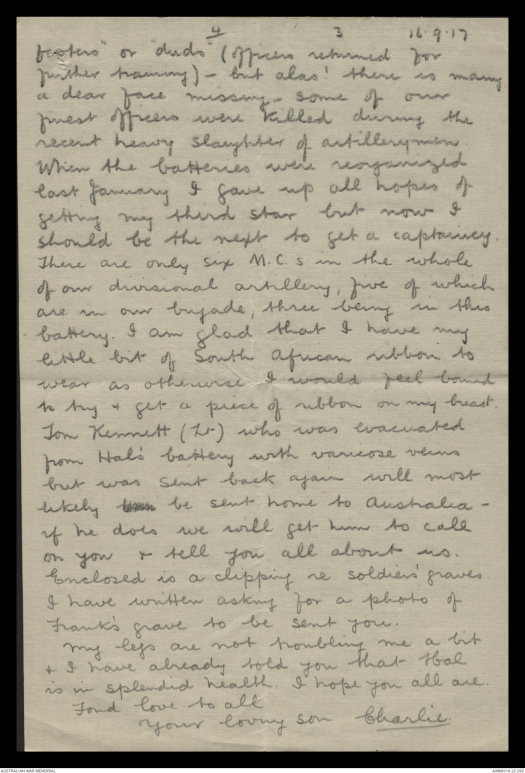 4 3 16.9.17
footers" or "duds" (officers returned for
further training) - but alas! there is many
a dear face missing - some of our
finest officers were killed during the
recent heavy slaughter of artillerymen.
When the batteries were reorganized
last January I gave up all hopes of
getting my third star but now I
should be the next to get a captaincy.
There are only six M.C.s in the whole
of our divisional artillery, five of which
are in our brigade, three being in this
battery. I am glad that I have my
little bit of South African ribbon to
wear as otherwise I would feel bound
to try & get a piece of ribbon on my breast.
Tom Kennett (Lt) who was evacuated
from Hal's battery with varicose veins
but was sent back again will most
likely be sent home to Australia -
if he does we will get him to call
on you & tell you all about us.
Enclosed is a clipping re soldiers' graves
I have written asking for a photo of
Frank's grave to be sent you.
My legs are not troubling me a bit
& I have already told you that Hal
is in splendid health. I hope you all are.
Fond love to all
Your loving son Charlie.
AUSTRALIAN WAR MEMORIAL